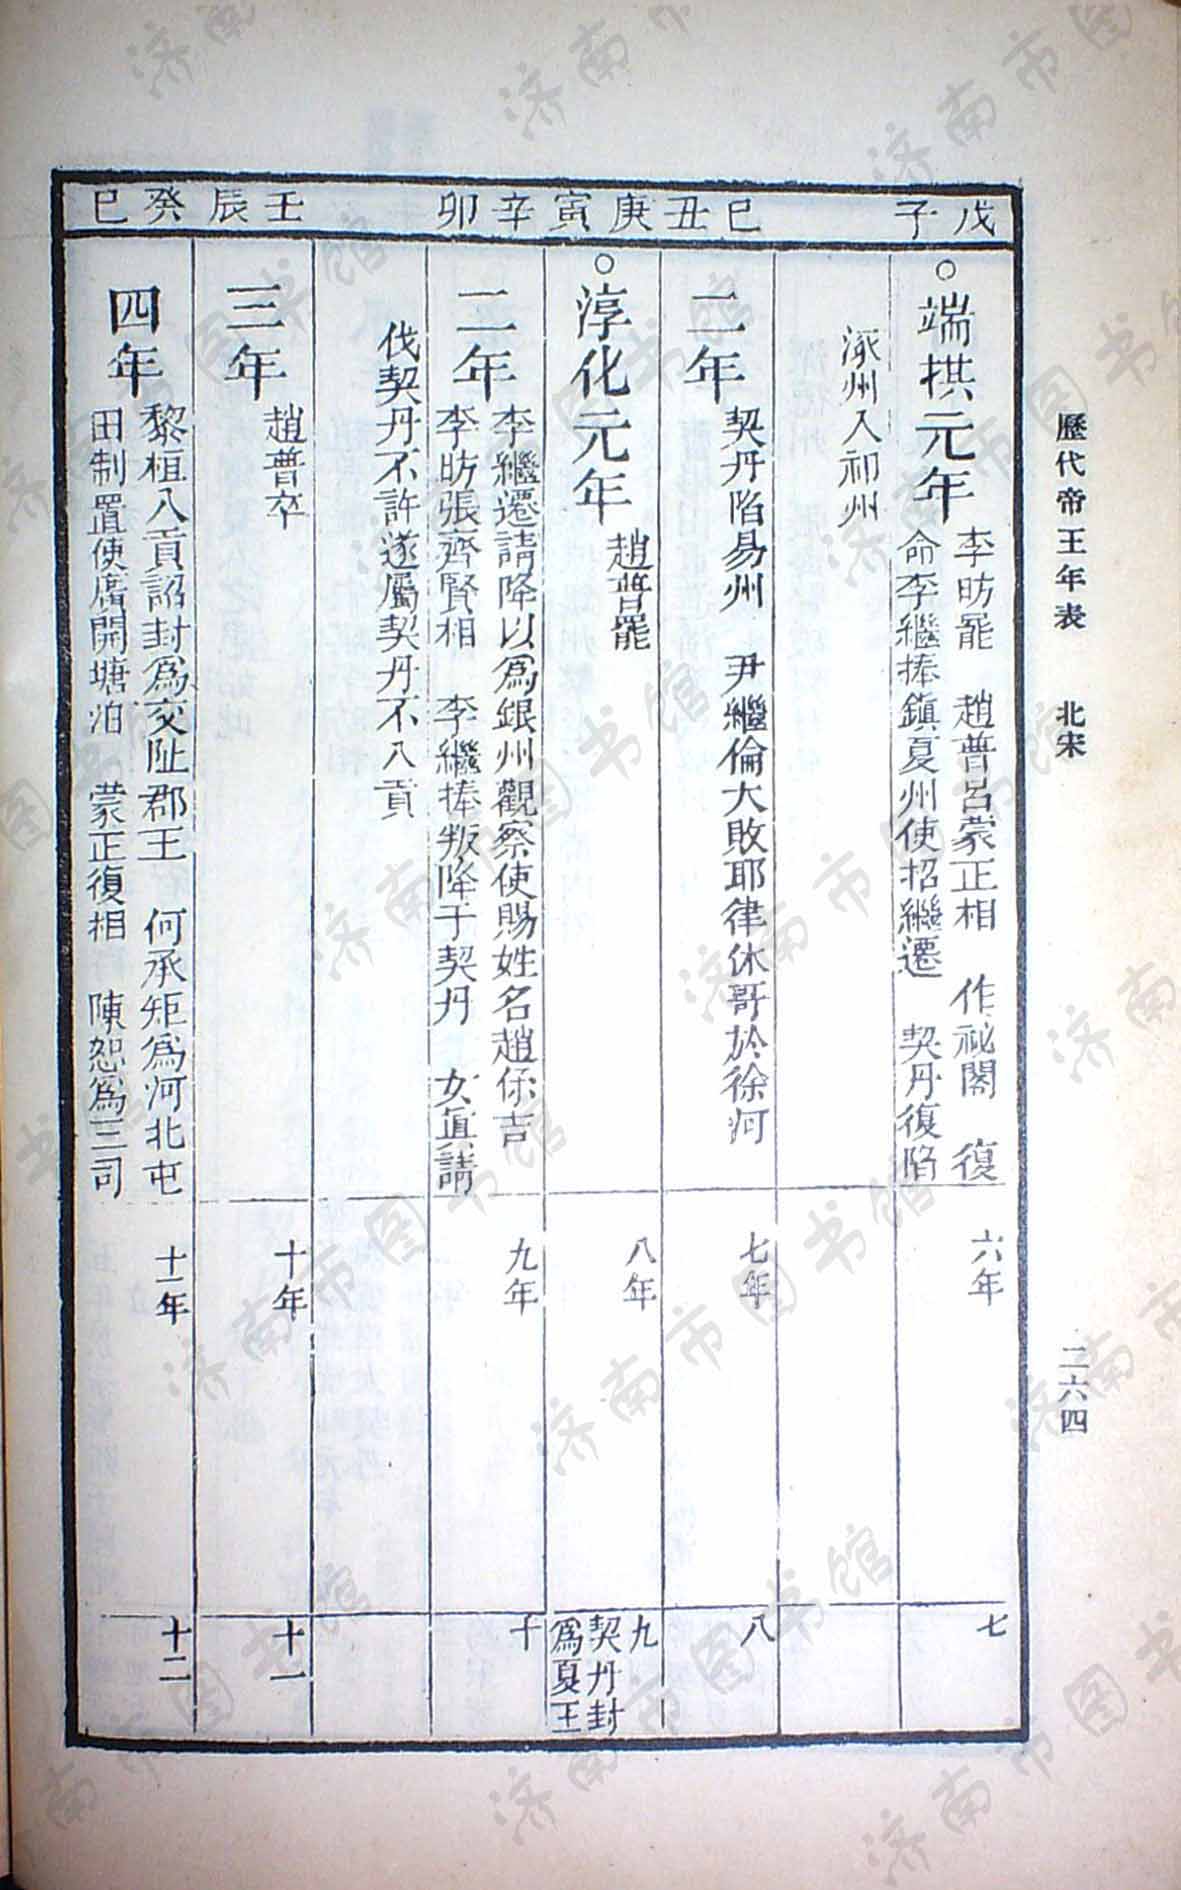 歷代帝王年表　北宋
二六四
戊子
○端拱元年
李昉罷　趙普呂蒙正相　作祕閣　復
命李繼捧鎮夏州使招繼遷　契丹復陷
涿州入祁州
六年
七
己丑
二年
契丹陷易州　尹繼倫大敗耶律休哥於徐河
七年
八
庚寅
○淳化元年
趙普罷
八年
九
契丹封
爲夏王
辛卯
二年
李繼遷請降以爲銀州觀察使賜姓名趙保吉
李昉張齊賢相　李繼捧叛降于契丹　女眞請
伐契丹不許遂屬契丹不入貢
九年
十
壬辰
三年
趙普卒
十年
十一
癸巳
四年
黎桓入貢詔封爲交阯郡王　何承矩爲河北屯
田制置使廣開塘泊　蒙正復相　陳恕爲三司
十一年
十二
济南市图书馆